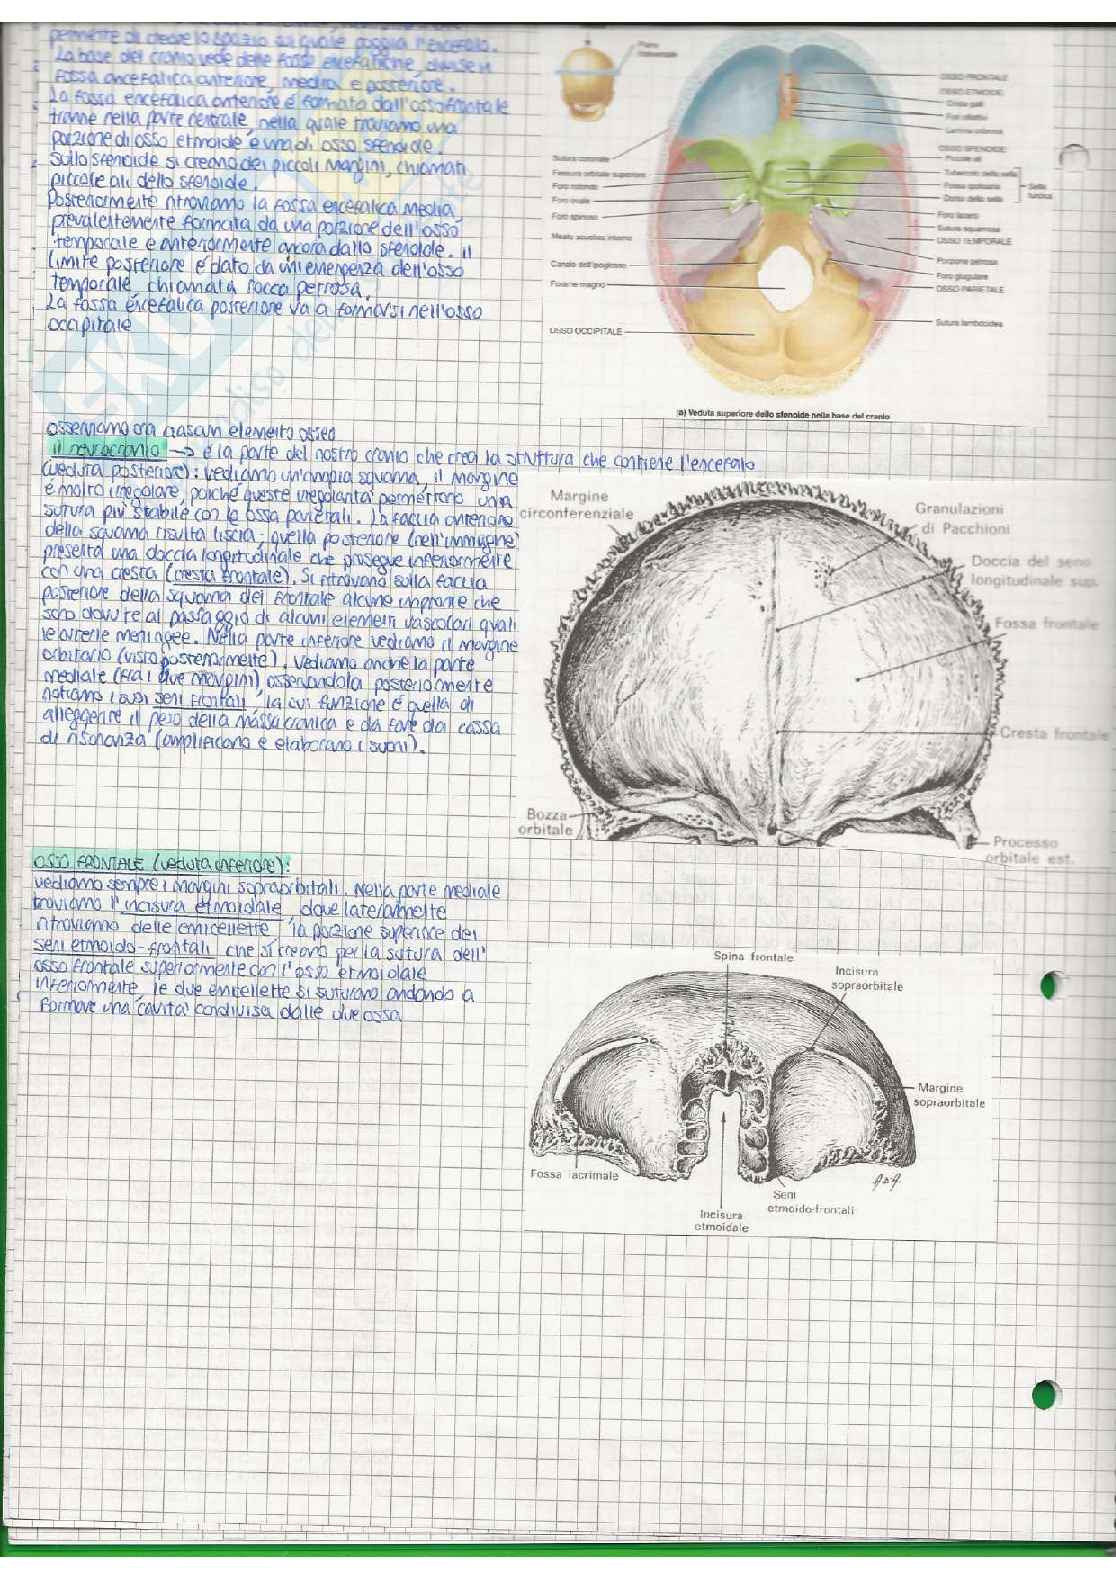 permette di creare lo spazio sul quale poggia l'encefalo.
La base del cranio vede delle fosse encefaliche, divise in
fossa encefalica anteriore, media e posteriore.
La fossa encefalica anteriore è formata dall'osso frontale
tranne nella parte centrale nella quale troviamo una
porzione di osso etmoide e una di osso sfenoide.
Sullo sfenoide si creano dei piccoli margini, chiamati
piccole ali dello sfenoide.
Posteriormente ritroviamo la fossa encefalica media,
prevalentemente formata da una porzione dell'osso
temporale e anteriormente ancora dallo sfenoide. il
limite posteriore è dato da un'emergenza dell'osso
temporale chiamata rocca petrosa.
La fossa encefalica posteriore va a formarsi nell'osso
occipitale
Piano
OSSO FRONTALE
OSSO ETMOIDE
Crista galli
Lamina cribrosa
OSSO SFENOIDE
Piccole ali
Tubercolo della sella
Fossa ipofisaria
Dorso della sella
Sella
turcica
Foro lacero
Sutura squamosa
OSSO TEMPORALE
Porzione petrosa
Foro giugulare
OSSO PARIETALE
Sutura lambdoidea
Sutura coronale
Fessura orbitale superiore
Foro rotondo
Foro ovale
Foro spinoso
Meato acustico interno
Canale dell'ipoglosso
Forame magno
OSSO OCCIPITALE
(a) Veduta superiore dello sfenoide nella base del cranio
osserviamo ora ciascun elemento osseo
il neurocranio → è la parte del nostro cranio che crea la struttura che contiene l'encefalo
(veduta posteriore): vediamo un'ampia squama, il margine
è molto irregolare, poiché queste irregolarità permettono una
sutura più stabile con le ossa parietali. La faccia anteriore
della squama risulta liscia; quella posteriore (nell'immagine)
presenta una doccia longitudinale che prosegue inferiormente
con una cresta (cresta frontale). Si ritrovano sulla faccia
posteriore della squama del frontale alcune impronte che
sono dovute al passaggio di alcuni elementi vascolari quali
le arterie meningee. Nella parte inferiore vediamo il margine
orbitario (visto posteriormente). Vediamo anche la parte
mediale (fra i due margini) osservandola posteriormente
notiamo i due seni frontali, la cui funzione è quella di
alleggerire il peso della massa cranica e da fare da cassa
di risonanza (amplificano e elaborano i suoni).
Margine
circonferenziale
Granulazioni
di Pacchioni
Doccia del seno
longitudinale sup.
Fossa frontale
Cresta frontale
Bozza
orbitale
Processo
orbitale est.
OSSO FRONTALE (veduta inferiore):
vediamo sempre i margini sopraorbitali. Nella parte mediale
troviamo l'incisura etmoidale, dove lateralmente
ritroviamo delle emicellette, la porzione superiore dei
seni etmoido-frontali che si creano per la sutura dell'
osso frontale superiormente con l'osso etmoidale
inferiormente, le due emicellette si suturano andando a
formare una cavità condivisa dalle due ossa
Spina frontale
Incisura
sopraorbitale
Margine
sopraorbitale
Fossa lacrimale
Seni
etmoido-frontali
Incisura
etmoidale